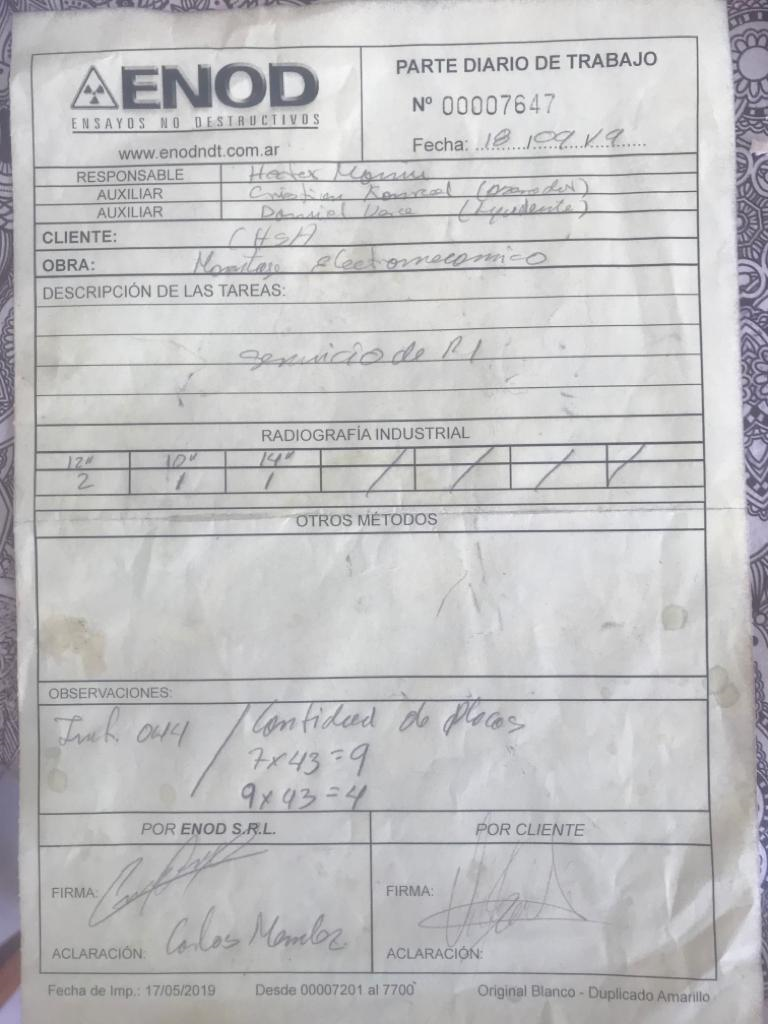 ENOD
ENSAYOS NO DESTRUCTIVOS
www.enodndt.com.ar
PARTE DIARIO DE TRABAJO
Nº 00007647
Fecha: 18/09/19
RESPONSABLE Hector
AUXILIAR Cristian (operador)
AUXILIAR Daniel (Ayudante)
CLIENTE: CHSA
OBRA: Montaje electromecanico
DESCRIPCIÓN DE LAS TAREAS:
Servicio de RI
RADIOGRAFÍA INDUSTRIAL
12" 10" 14" / / / /
2 1 1
OTROS MÉTODOS
OBSERVACIONES:
Inf. 044 / Cantidad de placas
7x43=9
9x43=4
POR ENOD S.R.L. POR CLIENTE
FIRMA: FIRMA:
ACLARACIÓN: Carlos ACLARACIÓN:
Fecha de Imp.: 17/05/2019 Desde 00007201 al 7700 Original Blanco - Duplicado Amarillo